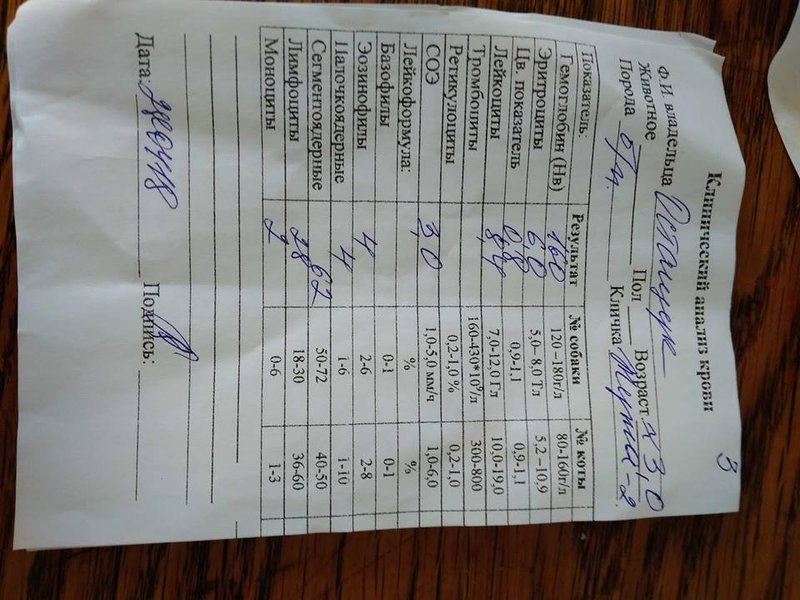 3
Клинический анализ крови
Ф.И. владельца
Животное Пол Возраст 3,0
Порода б/п. Кличка -2
Показатель: Результат № собаки № коты
Гемоглобин (Нв) 160 120 –180г/л 80-160г/л
Эритроциты 6,0 5,0–8,0 Тл 5,2 –10,9
Цв. показатель 0,8 0,9-1,1 0,9-1,1
Лейкоциты 7,0-12,0 Гл 10,0-19,0
Тромбоциты 160-430*10⁹/л 300-800
Ретикулоциты 0,2-1,0 % 0,2-1,0
СОЭ 3,0 1,0-5,0 мм/ч 1,0-6,0
Лейкоформула: % %
Базофилы 0-1 0-1
Эозинофилы 4 2-6 2-8
Палочкоядерные 4 1-6 1-10
Сегментоядерные 62 50-72 40-50
Лимфоциты 28 18-30 36-60
Моноциты 2 0-6 1-3
Дата: Подпись: